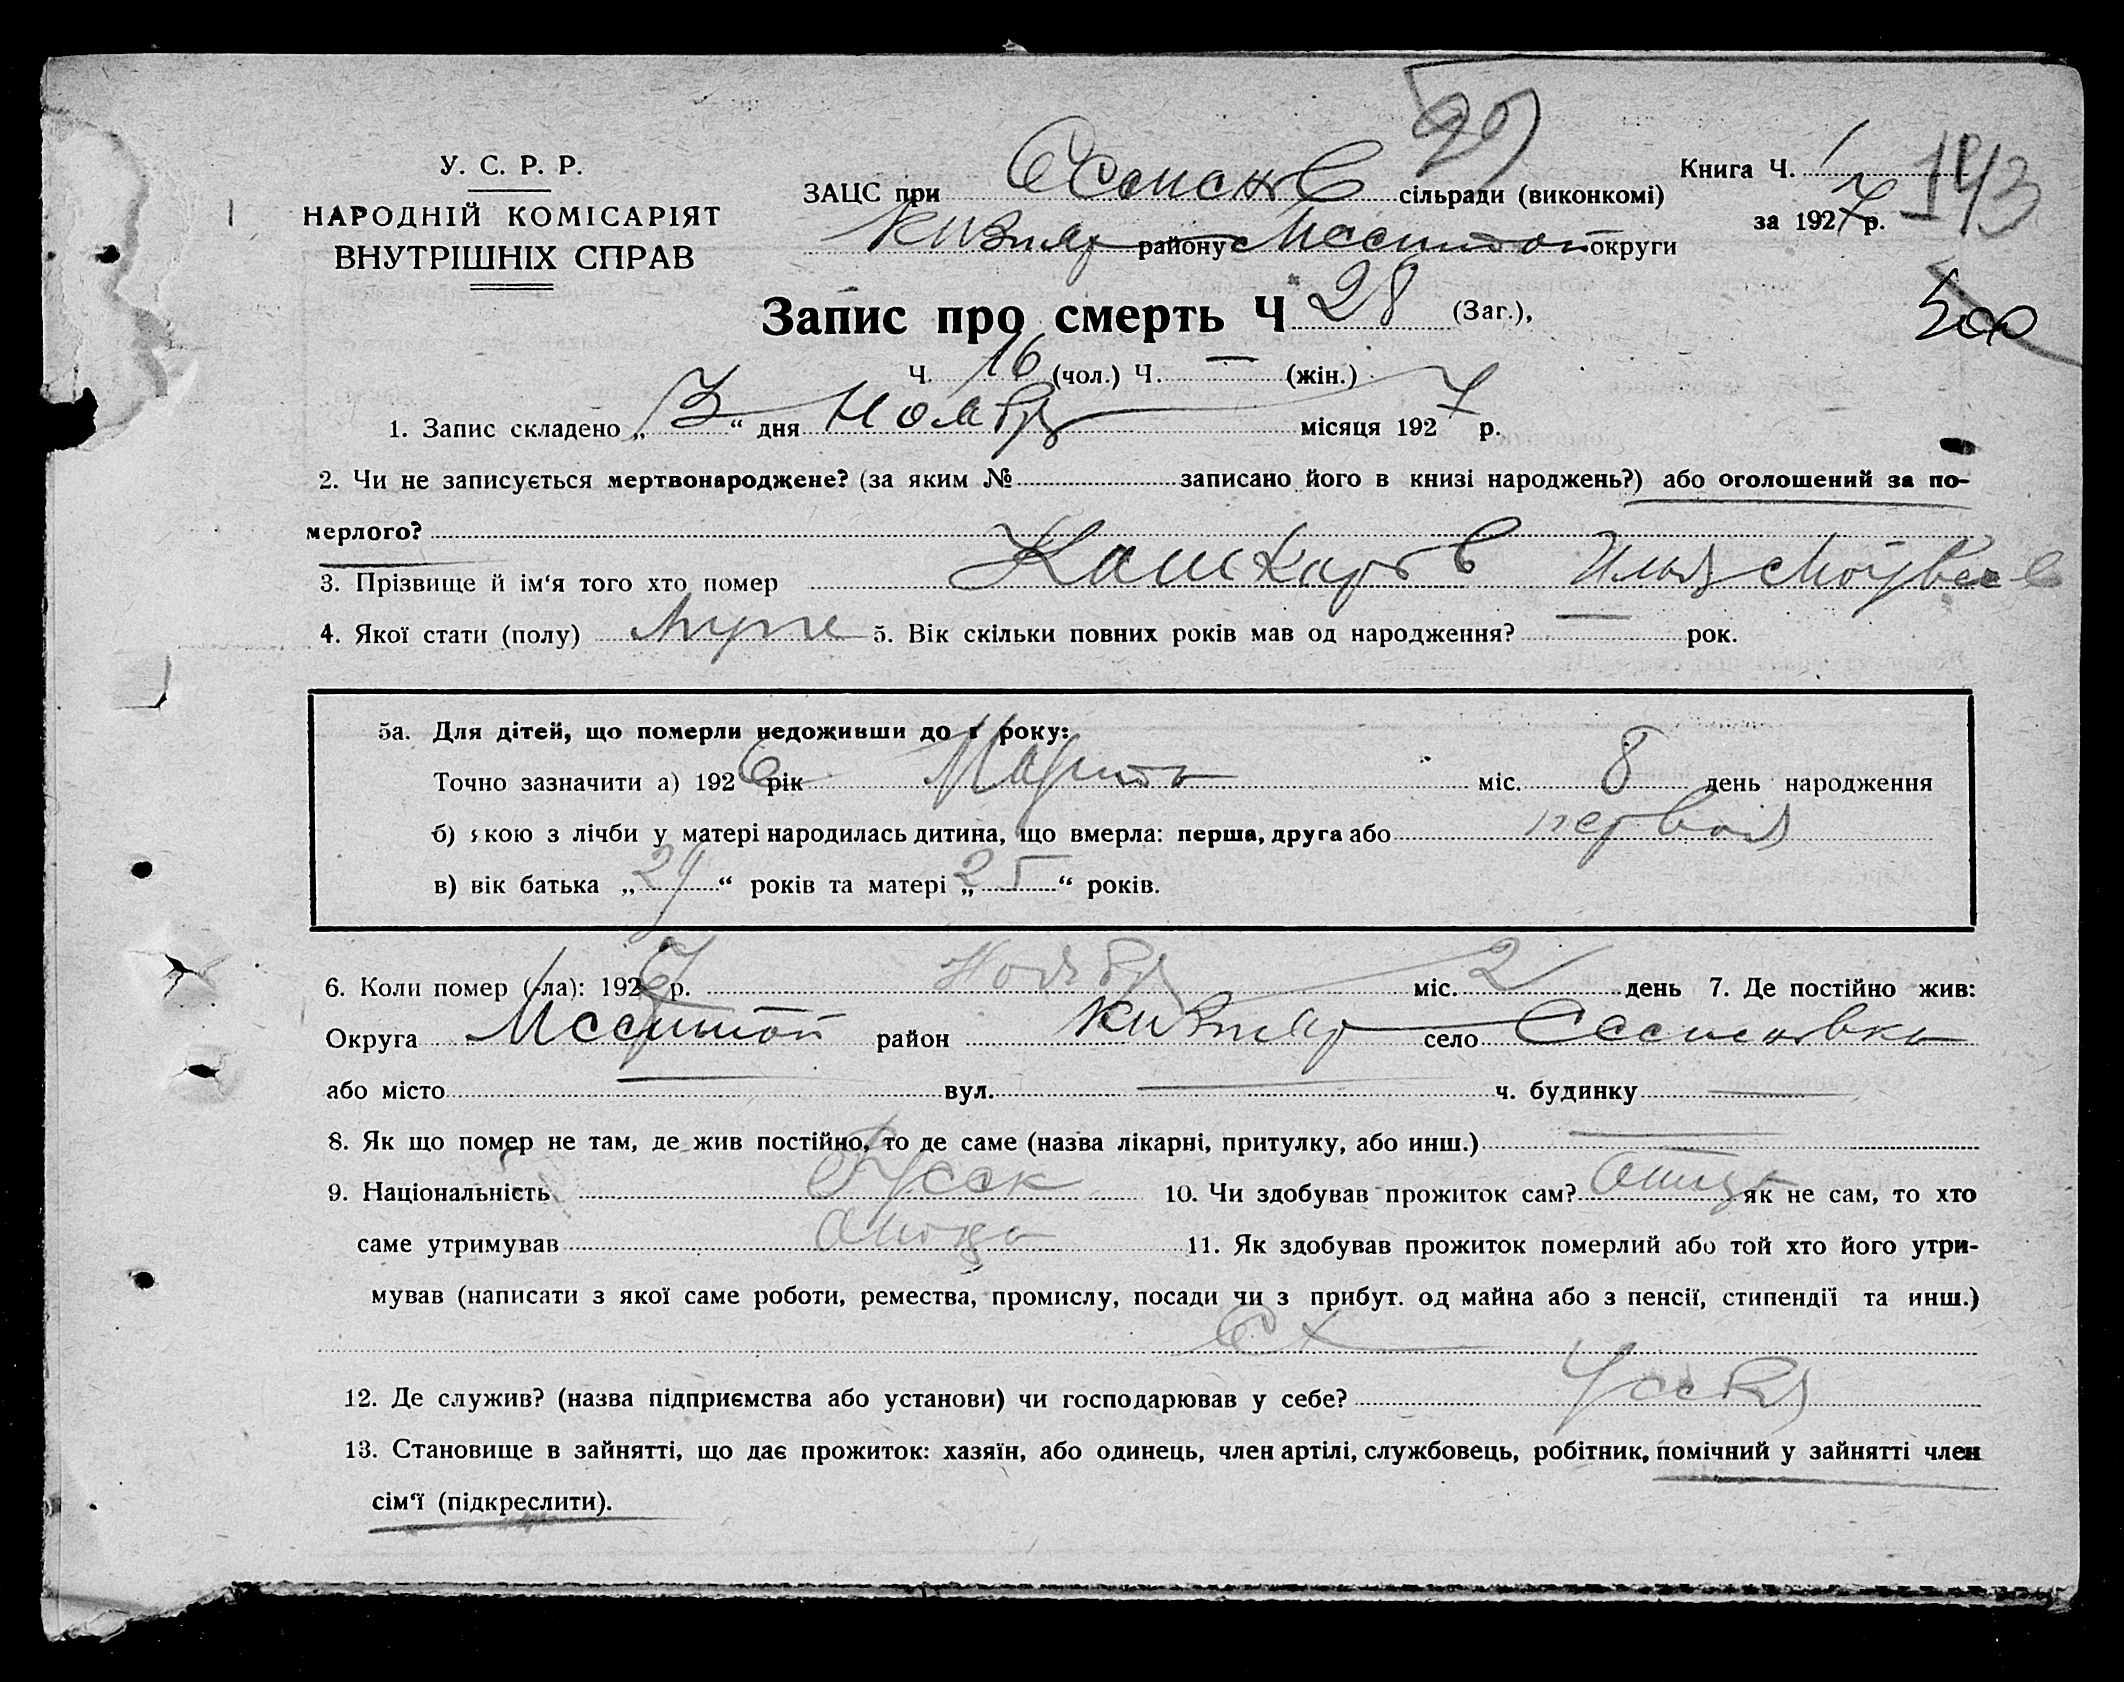 29
У. С. Р. Р.
НАРОДНІЙ КОМІСАРІЯТ
ВНУТРІШНІХ СПРАВ
ЗАЦС при сільради (виконкомі)
району округи
Книга Ч. 1
за 1927 р.
143
Запис про смерть Ч 28 (Заг.),
Ч. 16 (чол.) Ч. — (жін.)
1. Запис складено „ 3 “ дня Ноября місяця 1927 р.
2. Чи не записується мертвонароджене? (за яким № записано його в книзі народжень?) або оголошений за по-
мерлого?
3. Прізвище й ім'я того хто помер Кашкаров Илья
4. Якої стати (полу) 5. Вік скільки повних років мав од народження? — рок.
5а. Для дітей, що померли недоживши до 1 року:
Точно зазначити а) 1926 рік Марта міс. 8 день народження
б) якою з лічби у матері народилась дитина, що вмерла: перша, друга або первая
в) вік батька „ 29 “ років та матері „ 25 “ років.
6. Коли помер (-ла): 1927 р. Ноября міс. 2 день 7. Де постійно жив:
Округа район село
або місто — вул. — ч. будинку —
8. Як що помер не там, де жив постійно, то де саме (назва лікарні, притулку, або инш.) —
9. Національність Русск 10. Чи здобував прожиток сам? як не сам, то хто
саме утримував Отець 11. Як здобував прожиток померлий або той хто його утри-
мував (написати з якої саме роботи, ремества, промислу, посади чи з прибут. од майна або з пенсії, стипендії та инш.)
СХ
12. Де служив? (назва підприємства або установи) чи господарював у себе? У себя
13. Становище в зайнятті, що дає прожиток: хазяїн, або одинець, член артілі, службовець, робітник, помічний у зайнятті член
сім'ї (підкреслити).